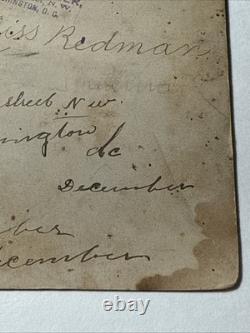 N. W.
SHINGTON, D. C.
iss Redman
street N.W.
ington
dc
December
ber
ecember